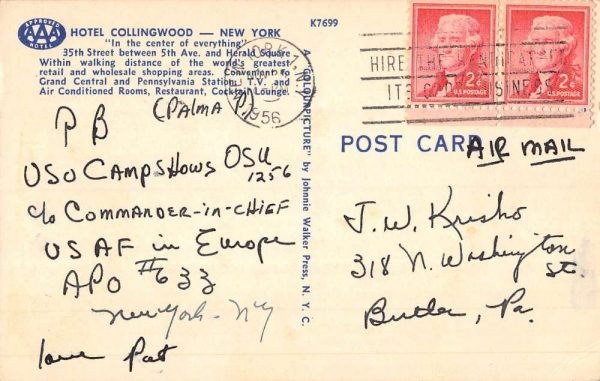 APPROVED
AAA
HOTEL
HOTEL COLLINGWOOD — NEW YORK
"In the center of everything"
35th Street between 5th Ave. and Herald Square
Within walking distance of the world's greatest
retail and wholesale shopping areas. Convenient to
Grand Central and Pennsylvania Station. T.V. and
Air Conditioned Rooms, Restaurant, Cocktail Lounge.
(Palma P.)
P B
USO CAMPSHOWS OSU
1256
c/o COMMANDER-IN-CHIEF
US AF in Europe
APO #633
New York - NY
love Pat
K7699
YORK, 1
1956
A "COLORPICTURE" by Johnnie Walker Press, N. Y. C.
HIRE THE
IT'S GOOD BUSINESS
2¢
U.S. POSTAGE
2¢
U.S. POSTAGE
POST CARD
AIR MAIL
J. W. Krisko
318 N. Washington
St.
Butler, Pa.